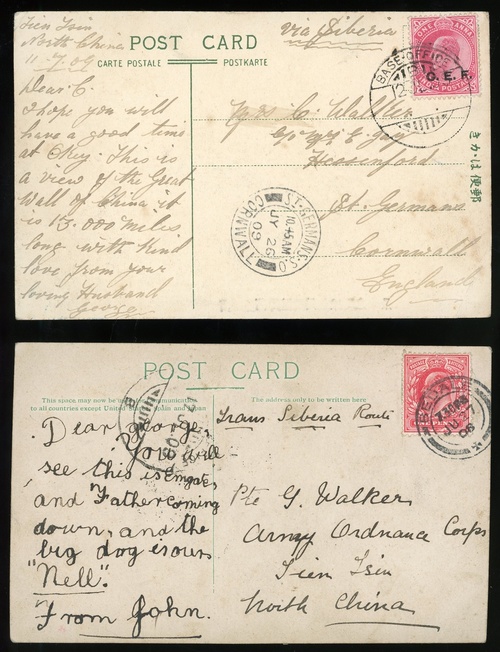 Tien Tsin
North China
11.7.09
via Siberia
POST CARD
CARTE POSTALE
POSTKARTE
ONE ANNA
C. E. F.
INDIA POSTAGE
BASE OFFICE
Dear C.
I hope you will
have a good time
at This is
a view of the Great
Wall of China it
is 13.000 miles
long with kind
love from your
loving Husband
George
Mrs C. Walker
Hessenford
St. Germans
Cornwall
England
ST. GERMANS S.O.
10.45 AM
JY 26
09
CORNWALL
きかは便郵
POST CARD
This space may now be used for communication
to all countries except United States, Spain and Japan
The address only to be written here
Trans Siberia Route
Dear George
you will
see this is
and Father coming
down, and the
big dog is ours
"Nell".
From John.
Pte G. Walker
Army Ordnance Corps
Tien Tsin
North China